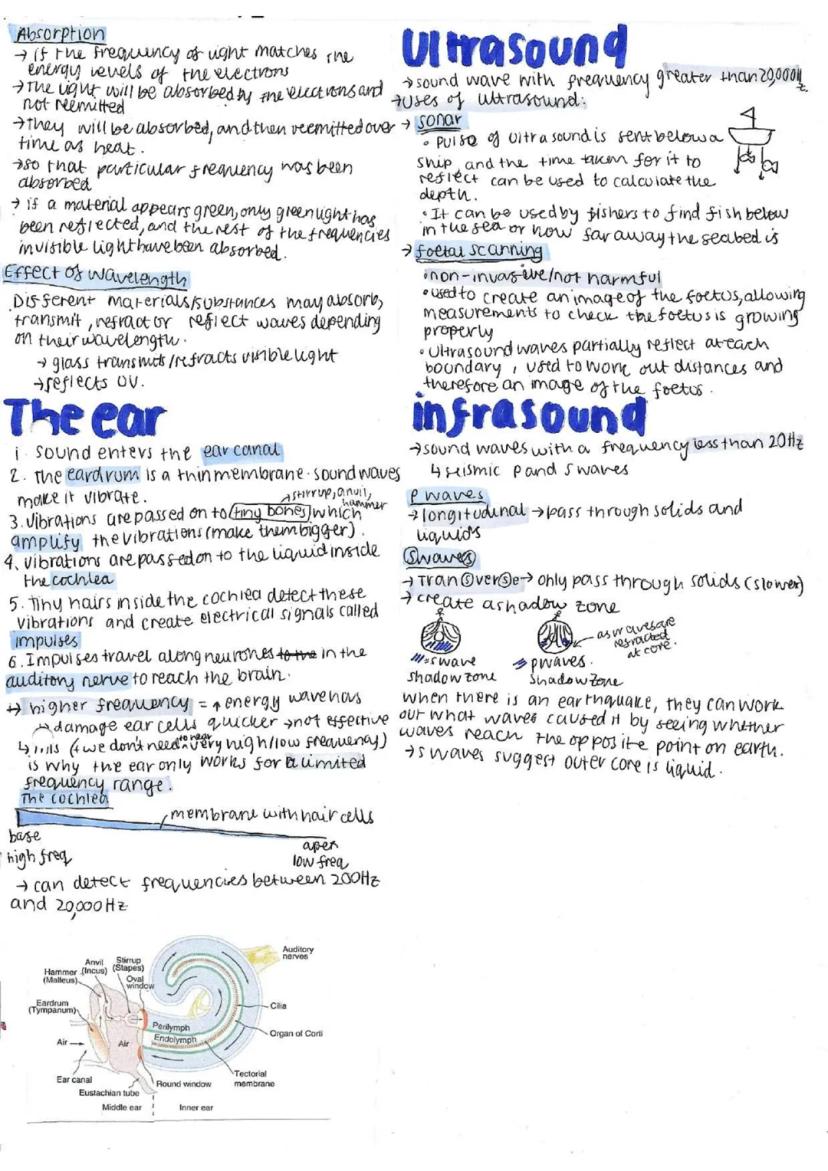 Absorption
→ if the frequency of light matches the
energy levels of the electrons
→ The light will be absorbed by the electrons and
not reemitted
→ They will be absorbed, and then reemitted over
time as heat.
→ so that particular frequency has been
absorbed
→ if a material appears green, only green light has
been reflected, and the rest of the frequencies
in visible light have been absorbed.
Effect of wavelength
Different materials/substances may absorb,
transmit, refract or reflect waves depending
on their wavelength.
→ glass transmits/refracts visible light
→ reflects UV.
The ear
1. sound enters the ear canal
2. The eardrum is a thin membrane. sound waves
make it vibrate.
stirrup, anvil,
hammer
3. vibrations are passed on to (tiny bones) which
amplify the vibrations (make them bigger).
4. vibrations are passed on to the liquid inside
the cochlea
5. Tiny hairs inside the cochlea detect these
vibrations and create electrical signals called
impulses
6. Impulses travel along neurones to the in the
auditory nerve to reach the brain.
↳ higher frequency = ↑ energy wave has
→ damage ear cells quicker → not effective
↳ this (& we don't need to hear very high/low frequency)
is why the ear only works for a limited
frequency range.
The cochlea
membrane with hair cells
base
high freq
apex
low freq
→ can detect frequencies between 200Hz
and 20,000Hz
Auditory
nerves
Stirrup
(Stapes)
Anvil
(Incus)
Hammer
(Malleus)
Oval
window
Eardrum
(Tympanum)
Cilia
Perilymph
Organ of Corti
Air
Air
Endolymph
Tectorial
membrane
Ear canal
Round window
Eustachian tube
Middle ear
Inner ear
Ultrasound
→ sound wave with frequency greater than 20,000Hz
→ uses of ultrasound:
→ sonar
• pulse of ultrasound is sent below a
ship, and the time taken for it to
reflect can be used to calculate the
depth.
• It can be used by fishers to find fish below
in the sea or how far away the seabed is
→ foetal scanning
• non-invasive/not harmful
• used to create an image of the foetus, allowing
measurements to check the foetus is growing
properly
• Ultrasound waves partially reflect at each
boundary, used to work out distances and
therefore an image of the foetus.
infrasound
→ sound waves with a frequency less than 20Hz
↳ seismic P and S waves
P waves
→ longitudunal → pass through solids and
liquids
S waves
→ TranSverSe → only pass through solids (slower)
→ create a shadow zone
as waves are
refracted
at core.
= s wave
shadow zone
= p waves.
shadow zone
when there is an earthquake, they can work
out what waves caused it by seeing whether
waves reach the opposite point on earth.
→ s waves suggest outer core is liquid.